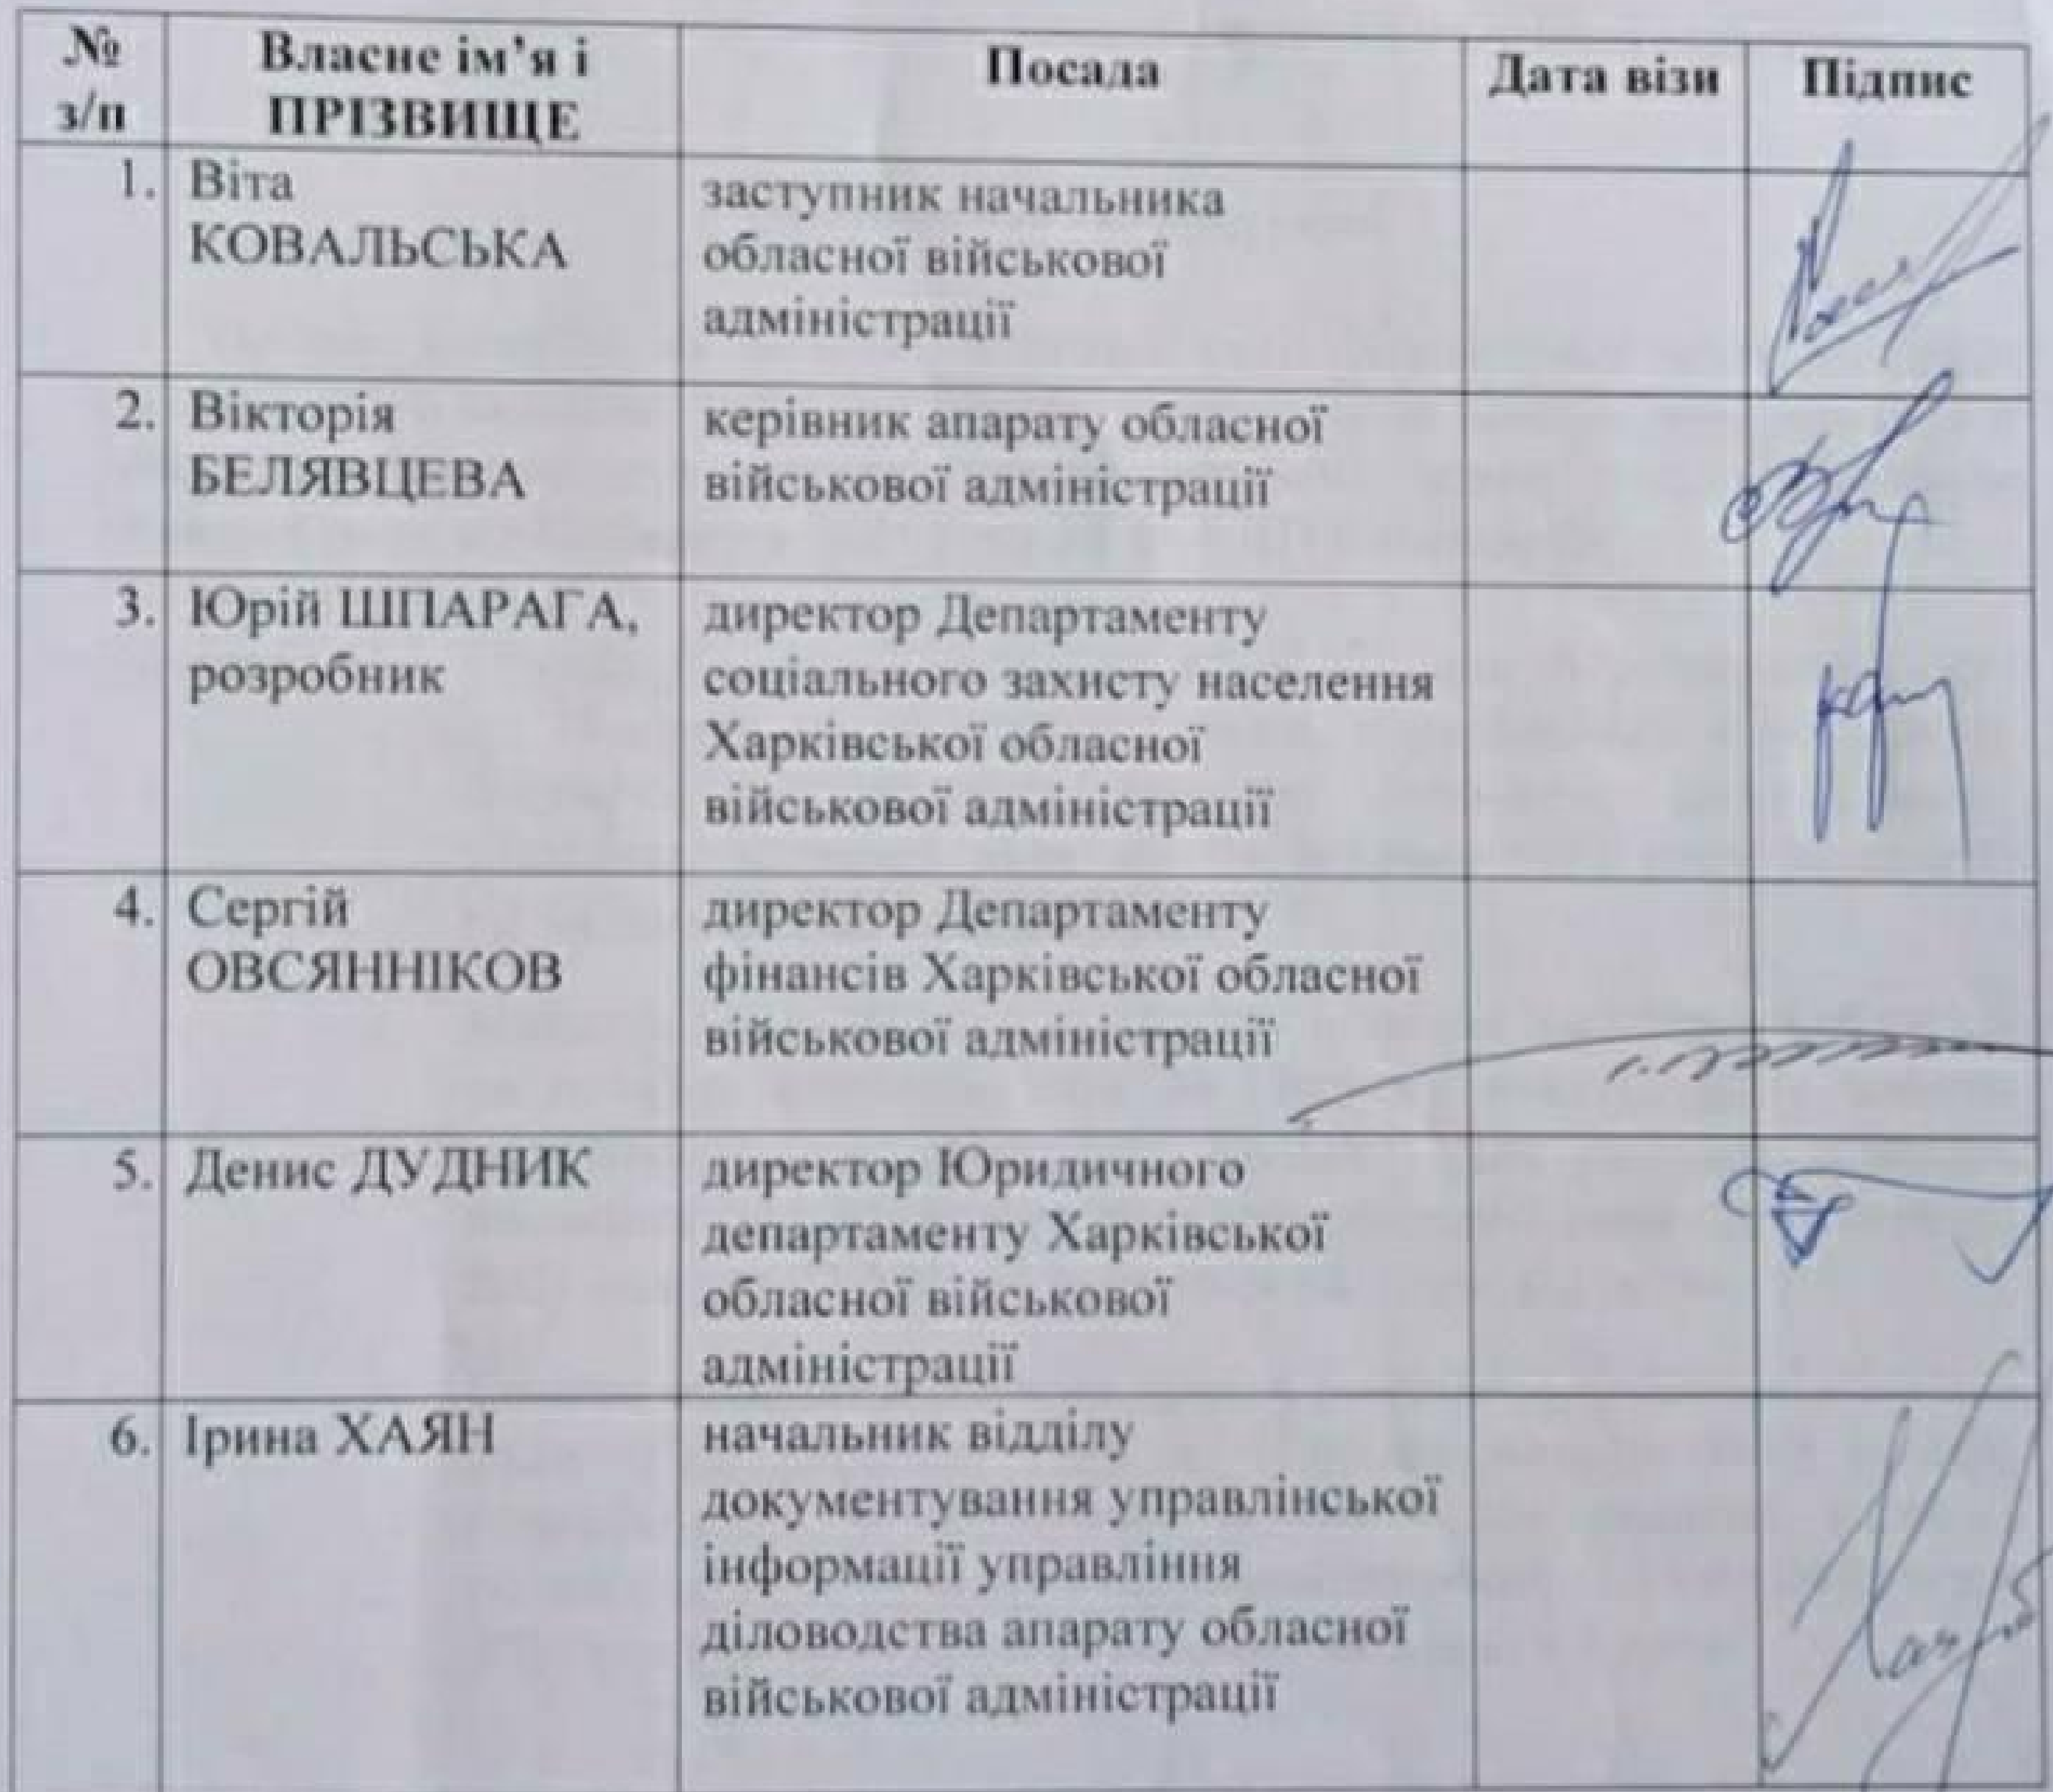 № з/п
Власне ім’я і ПРІЗВИЩЕ
Посада
Дата візи
Підпис
1.
Віта
КОВАЛЬСЬКА
заступник начальника
обласної військової
адміністрації
2.
Вікторія
БЕЛЯВЦЕВА
керівник апарату обласної
військової адміністрації
3.
Юрій ШПАРАГА,
розробник
директор Департаменту
соціального захисту населення
Харківської обласної
військової адміністрації
4.
Сергій
ОВСЯННІКОВ
директор Департаменту
фінансів Харківської обласної
військової адміністрації
5.
Денис ДУДНИК
директор Юридичного
департаменту Харківської
обласної військової
адміністрації
6.
Ірина ХАЯН
начальник відділу
документування управлінської
інформації управління
діловодства апарату обласної
військової адміністрації